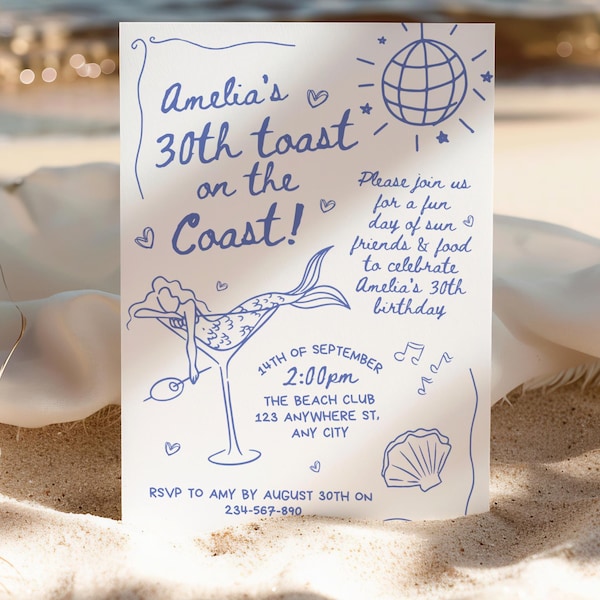 Amelia's
30th toast
on the
Coast!
Please join us
for a fun
day of sun
friends & food
to celebrate
Amelia's 30th
birthday
14TH OF SEPTEMBER
2:00pm
THE BEACH CLUB
123 ANYWHERE ST,
ANY CITY
RSVP TO AMY BY AUGUST 30TH ON
234-567-890